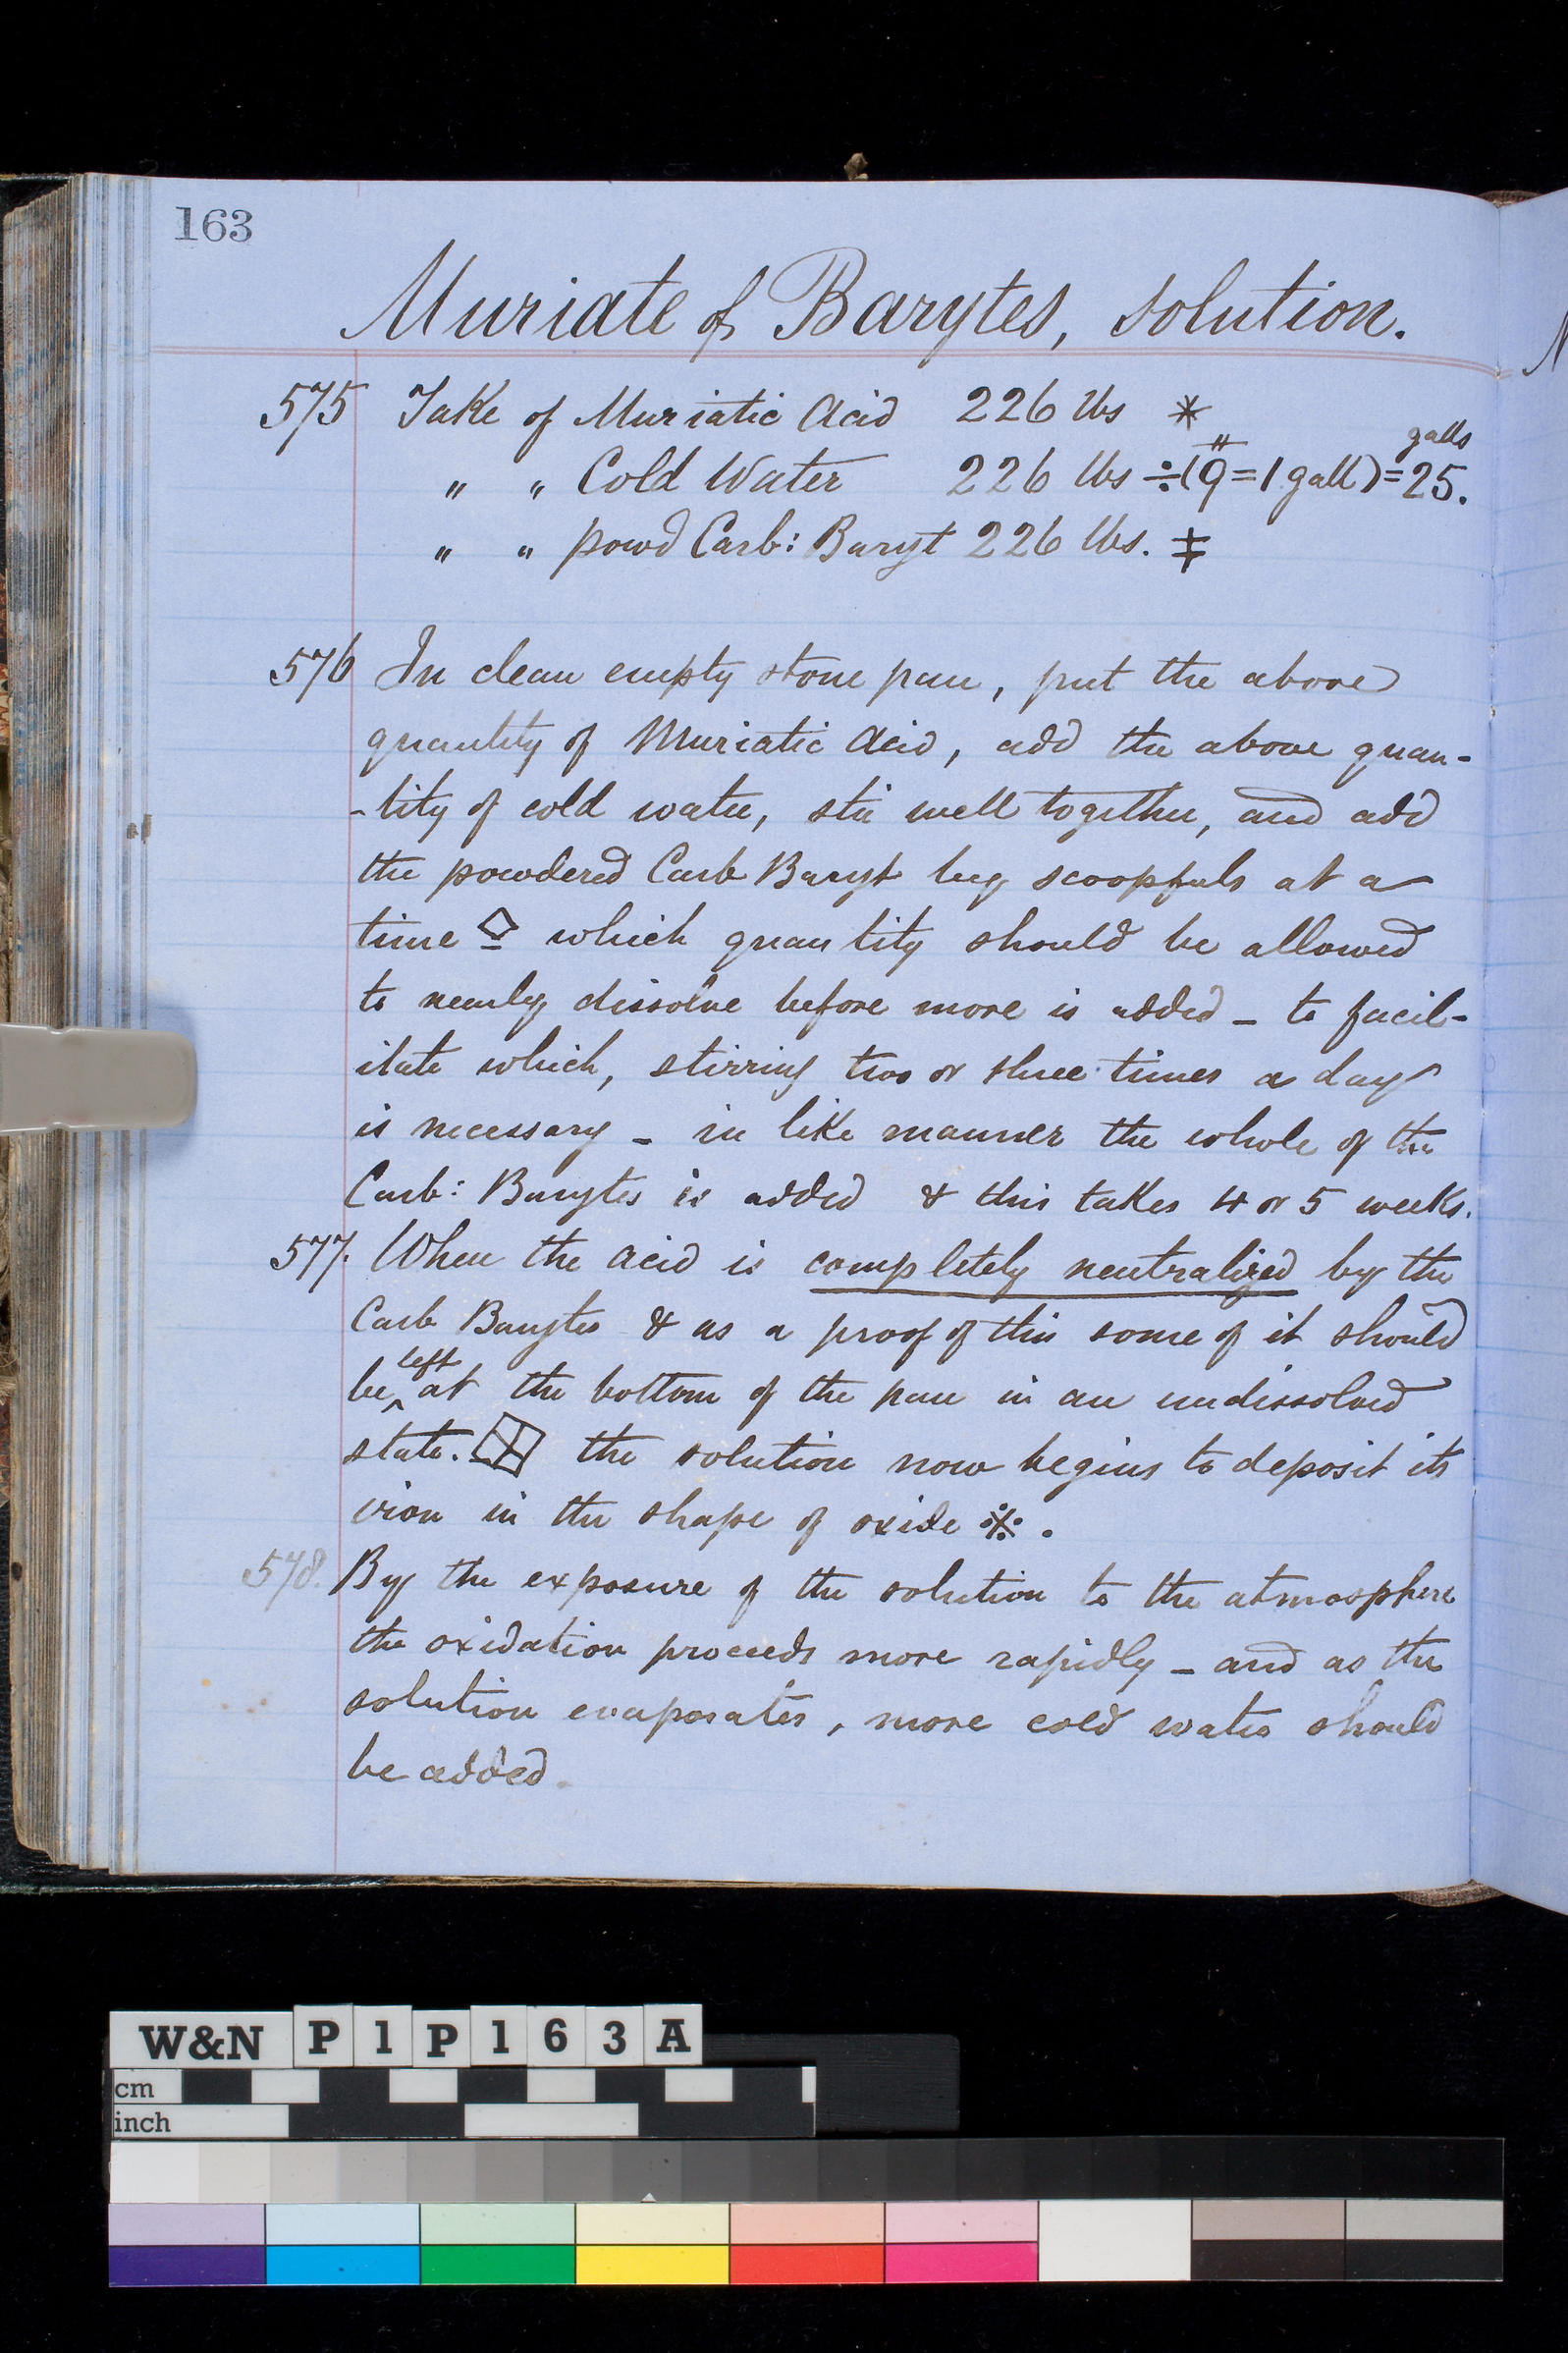 163
Muriate of Barytes, solution.
575 Take of Muriatic Acid 226 lbs *
galls
" " Cold Water 226 lbs ÷(9=1 gall)=25.
" " powd Carb: Baryt 226 lbs. ‡
576 In clean empty stone pan, put the above
quantity of Muriatic Acid, add the above quan-
-tity of cold water, stir well together, and add
the powdered Carb Baryt by scoopfuls at a
time ◇ which quantity should be allowed
to nearly dissolve before more is added - to facil-
itate which, stirring two or three times a day
is necessary - in like manner the whole of the
Carb: Barytes is added & this takes 4 or 5 weeks.
577. When the acid is completely neutralized by the
Carb Barytes & as a proof of this some of it should
be left at the bottom of the pan in an undissolved
state. ⊠ the solution now begins to deposit its
iron in the shape of oxide ※.
578. By the exposure of the solution to the atmosphere
the oxidation proceeds more rapidly - and as the
solution evaporates, more cold water should
be added.
W&N P1P163A
cm
inch